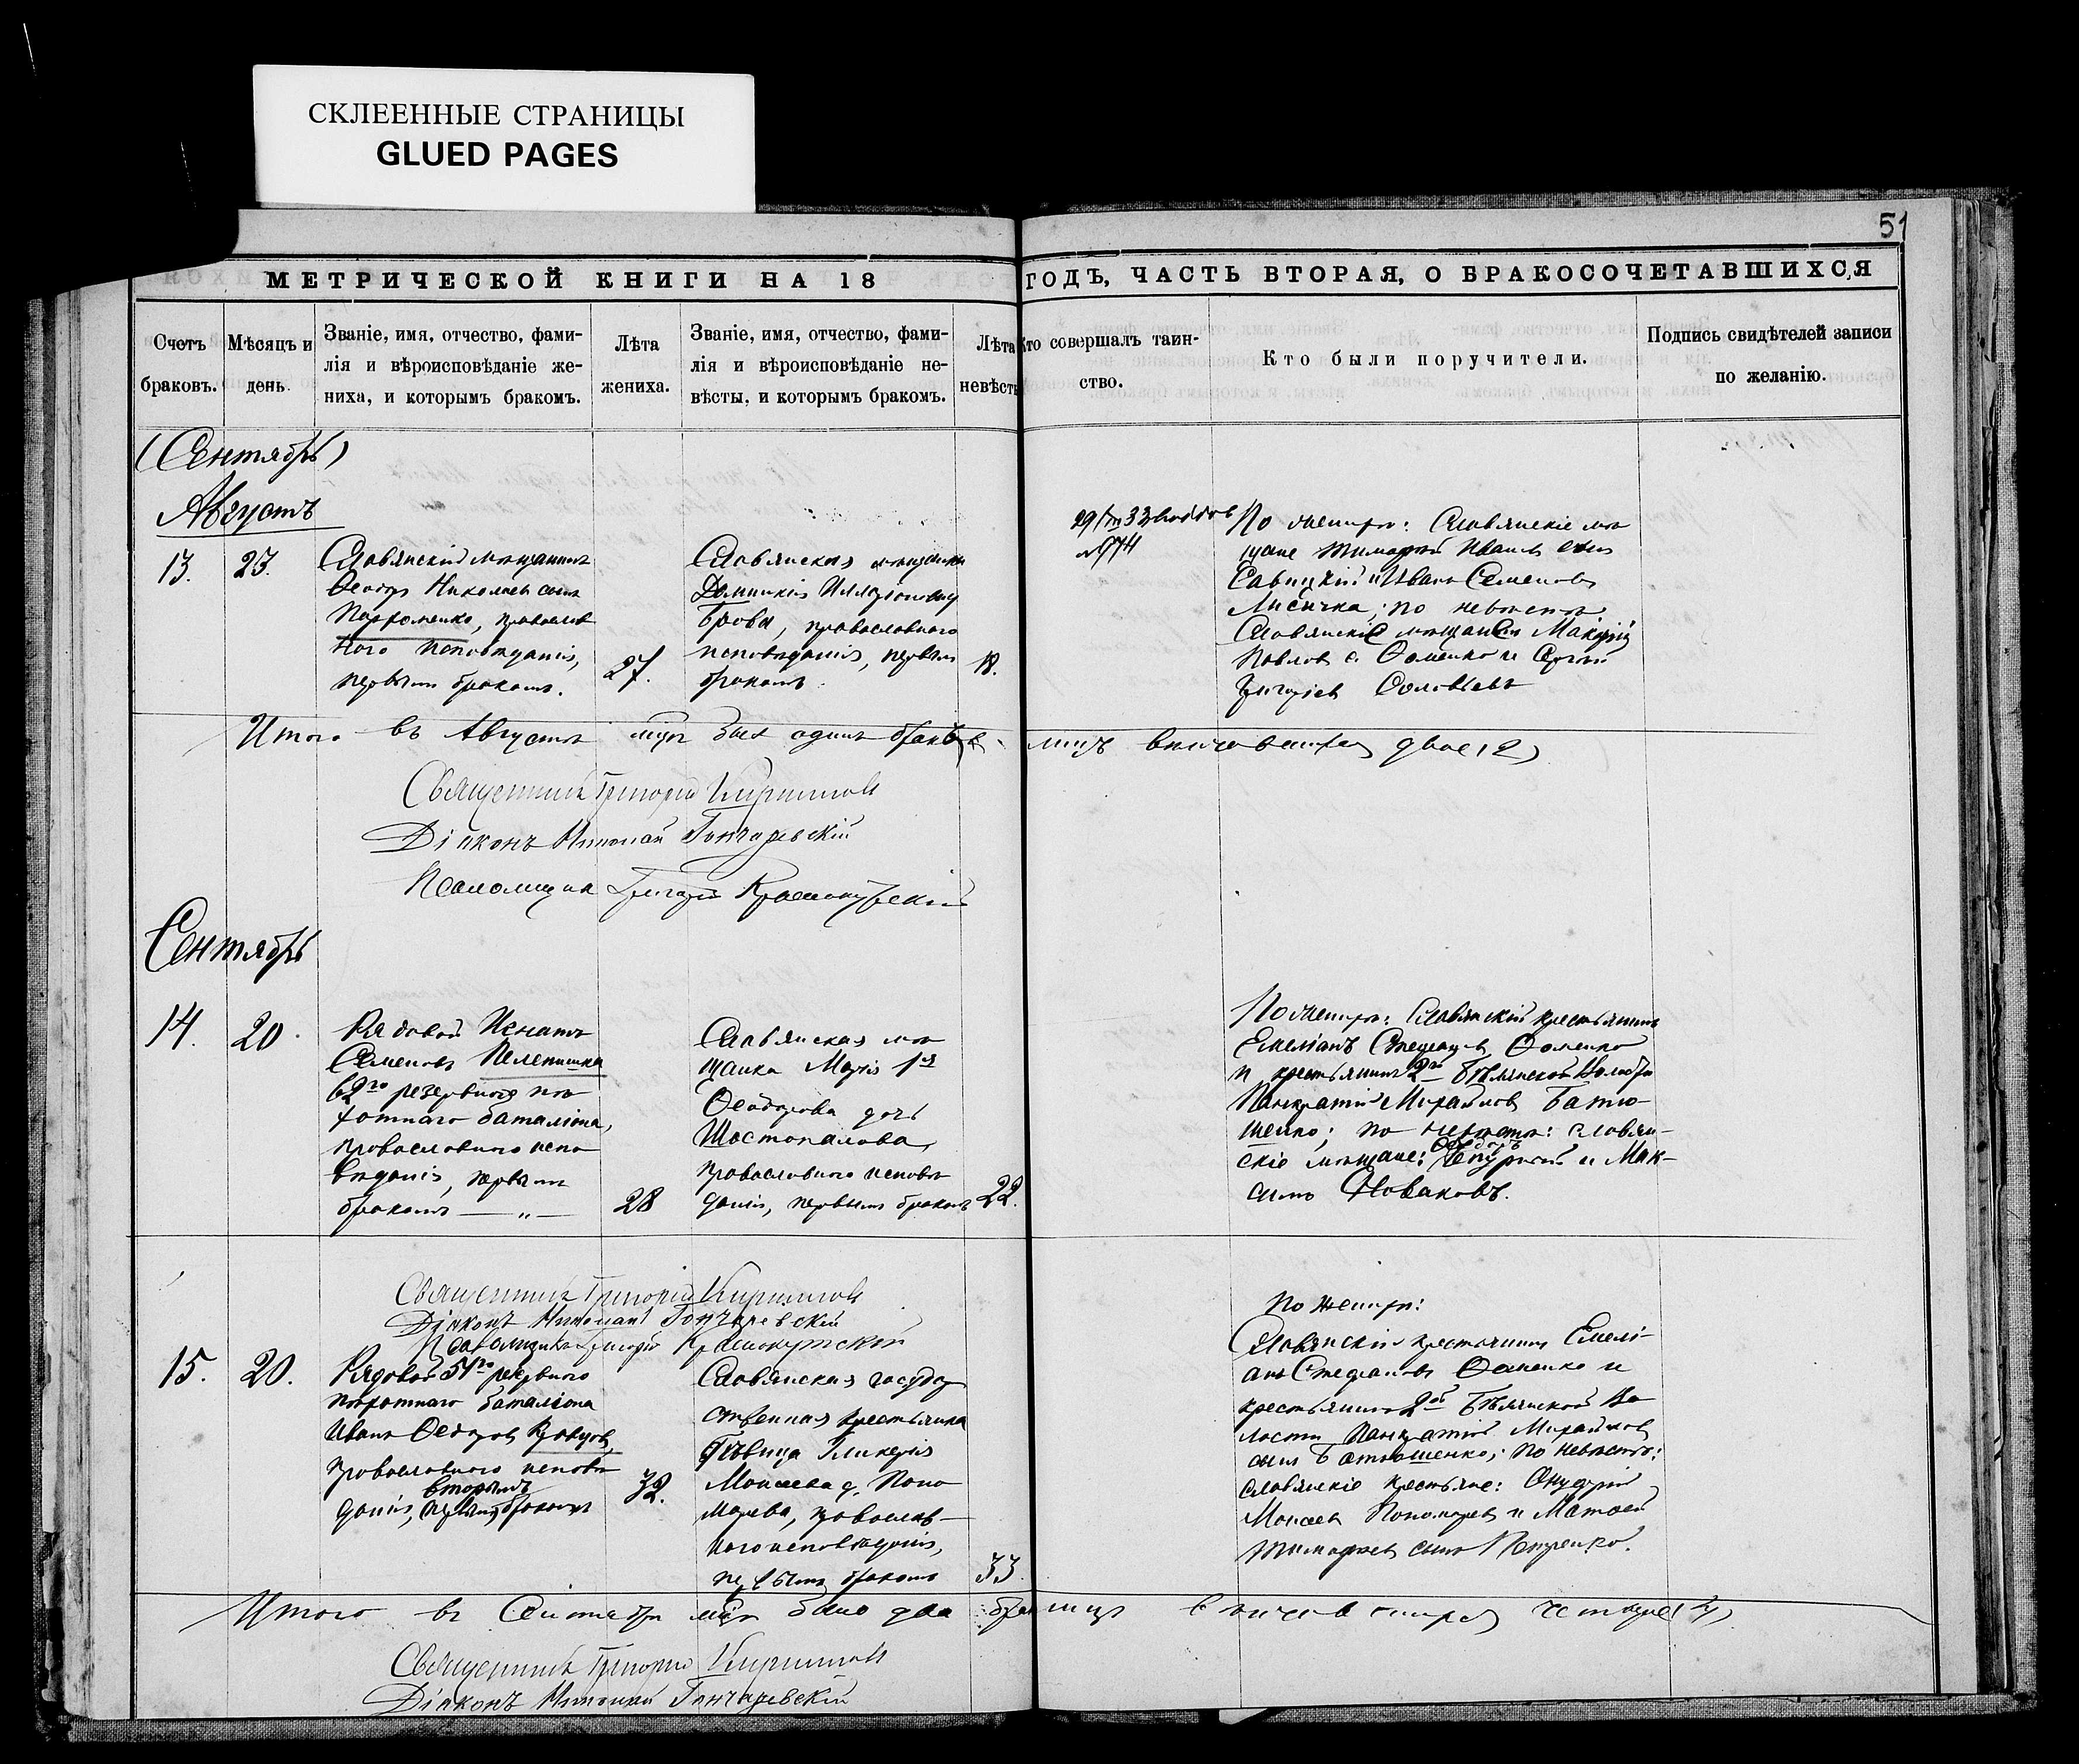 СКЛЕЕННЫЕ СТРАНИЦЫ
GLUED PAGES
51
МЕТРИЧЕСКОЙ КНИГИ НА 18 ГОДЪ, ЧАСТЬ ВТОРАЯ, О БРАКОСОЧЕТАВШИХСЯ
Счетъ
браковъ.
Мѣсяцъ и
день.
Званіе, имя, отчество, фами-
лія и вѣроисповѣданіе же-
ниха, и которымъ бракомъ.
Лѣта
жениха.
Званіе, имя, отчество, фами-
лія и вѣроисповѣданіе не-
вѣсты, и которымъ бракомъ.
Лѣта
невѣсты
Кто совершалъ таин-
ство.
Кто были поручители.
Подпись свидѣтелей записи
по желанію.
(Сентябрь)
Августъ
13.
23.
Славянскій мѣщанинъ
Ѳеодоръ Николаевъ сынъ
Пархоменко, православ
наго исповѣданія,
первымъ бракомъ.
27.
Славянская мѣщанка
Домникія Илларіонова
православнаго
исповѣданія, первымъ
бракомъ.
18.
№974
По женихѣ: Славянскіе мѣ
щане Тимофей Ивановъ сынъ
Савицкій и Иванъ Семеновъ
Лисичка; по невѣстѣ
Павловъ с. Ѳоменко и Сергѣй
Григорьевъ Соловьевъ
Итого въ Августѣ мцѣ былъ одинъ бракъ, а лицъ вѣнчавшихся двое (2)
Священникъ Григорій Кирилловъ
Діаконъ Николай Гончаревскій
Псаломщикъ Григорій Краснокутскій
Сентябрь
14.
20.
Рядовой Игнатъ
Семеновъ Пелепишка
62го резервнаго пѣ
хотнаго баталіона,
православнаго испо
вѣданія, первымъ
бракомъ — „ —
28
Славянская мѣ
щанка Марія
Ѳеодорова дочь
Шостопалова,
православнаго исповѣ
данія, первымъ бракомъ
22.
По женихѣ: Славянскій крестьянинъ
Емеліанъ Стефановъ Ѳоменко
и крестьянинъ 2й Бѣлянской Волости
Панкратій Михайловъ Батю-
шенко; по невѣстѣ: славян-
скіе мѣщане: и Мак-
симъ Новаковъ.
Священникъ Григорій Кирилловъ
Діаконъ Николай Гончаревскій
Псаломщикъ Григорій Краснокутскій
15.
20.
Рядовой 54го резервнаго
пѣхотнаго баталіона
Иванъ Ѳеодоровъ Кравцовъ,
православнаго исповѣ
вторымъ
данія, первымъ бракомъ
32.
Славянская государ
ственная крестьянка
дѣвица Гликерія
Моисеева д. Поно
марева, православ-
наго исповѣданія,
первымъ бракомъ
33.
По женихѣ:
Славянскій крестьянинъ Емелі-
анъ Стефановъ Ѳоменко и
крестьянинъ 2й Бѣлянской Во
лости Панкратій Михайловъ
сынъ Батюшенко; по невѣстѣ:
славянскіе крестьяне: Онуфрій
Моисеевъ Пономаревъ и Матвей
Тимофеевъ сынъ Петренко.
Итого въ Сентябрѣ мцѣ было два бра лицъ вѣнчавшихся четверо (4)
Священникъ Григорій Кирилловъ
Діаконъ Николай Гончаревскій